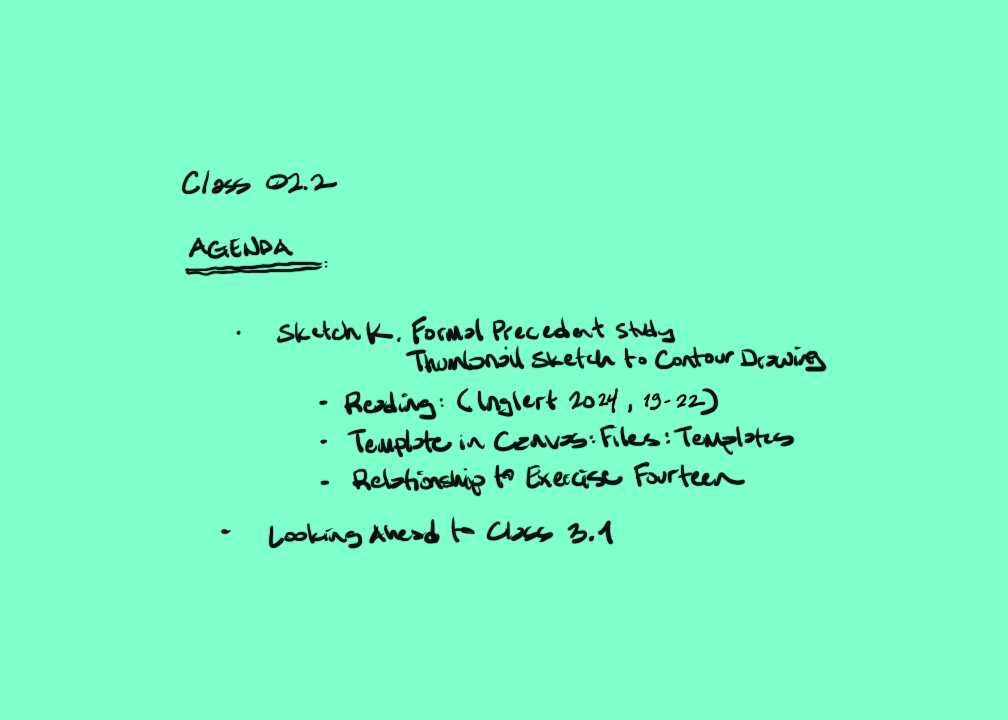 Class 02.2
AGENDA:
· Sketch K. Formal Precedent Study
Thumbnail Sketch to Contour Drawing
- Reading: (Inglert 2024, 19-22)
- Template in Canvas: Files: Templates
- Relationship to Exercise Fourteen
- Looking Ahead to Class 3.1